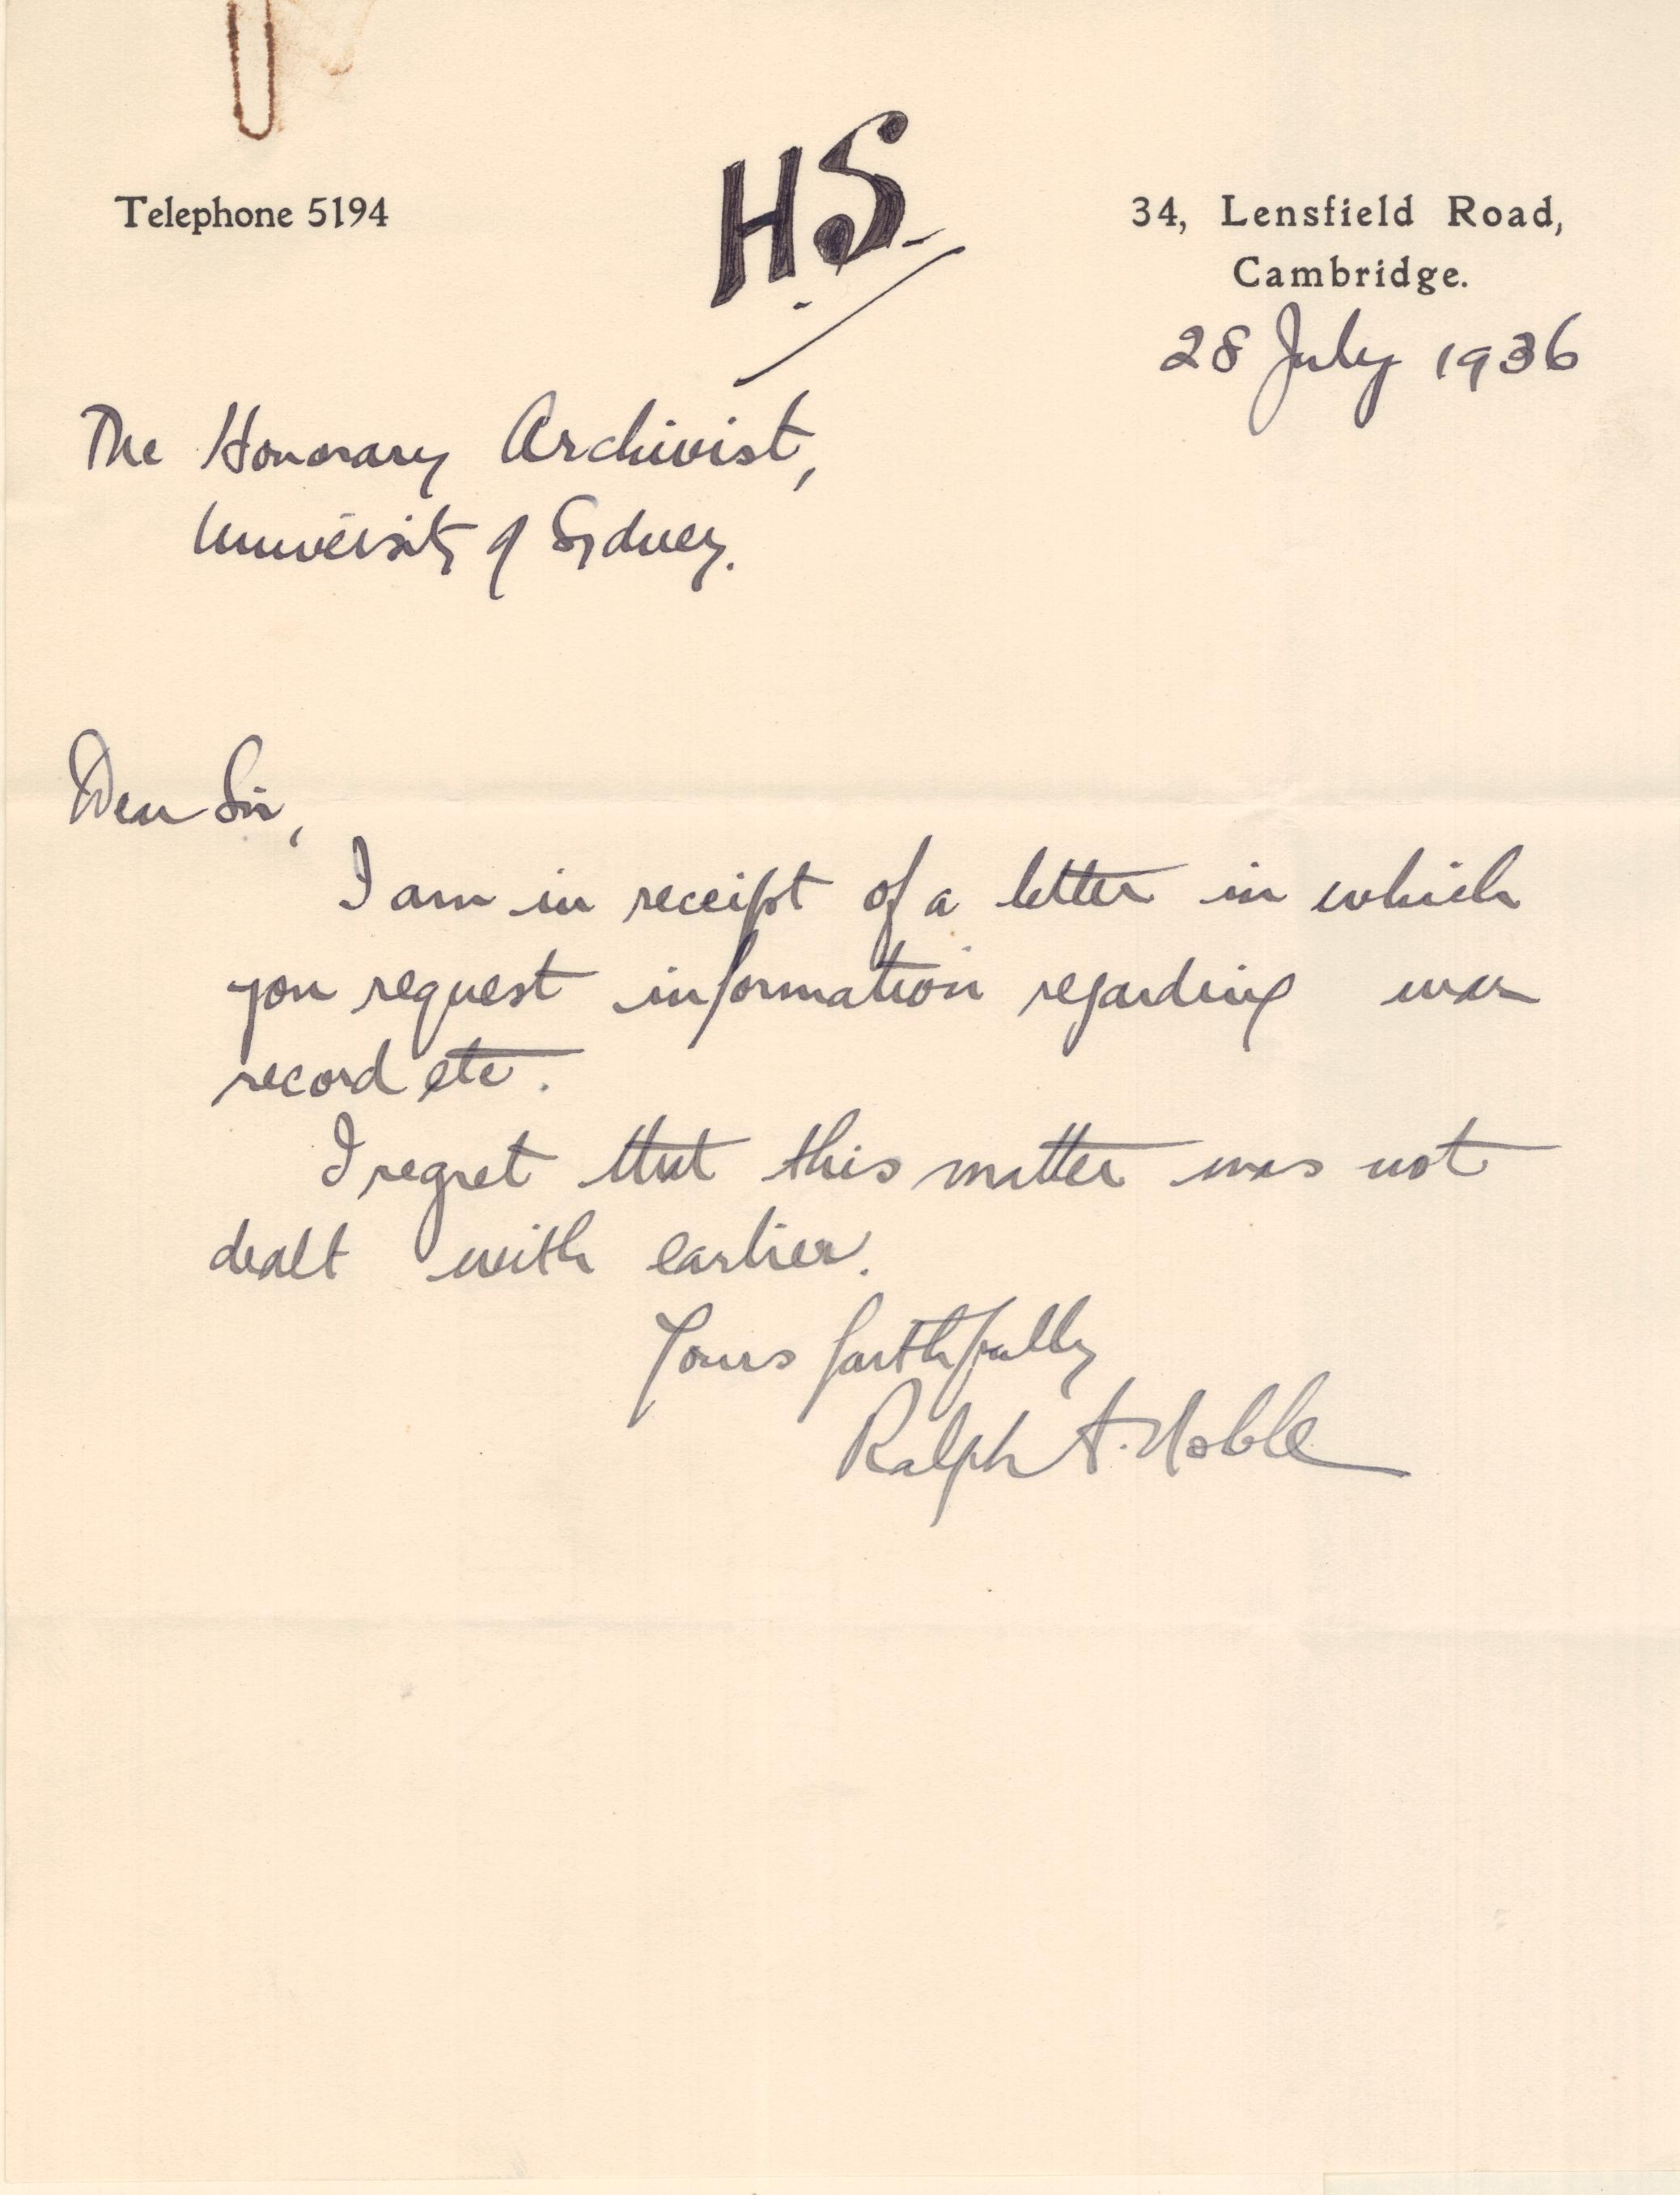 Telephone 5194
H.S.
34, Lensfield Road,
Cambridge.
28 July 1936
The Honorary Archivist,
University of Sydney.
Dear Sir,
I am in receipt of a letter in which
you request information regarding war
record etc.
I regret that this matter was not
dealt with earlier.
Yours faithfully
Ralph A. Noble